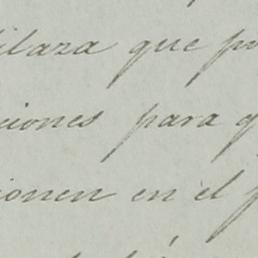 ilaza que po
ciones para q
ionen en el p